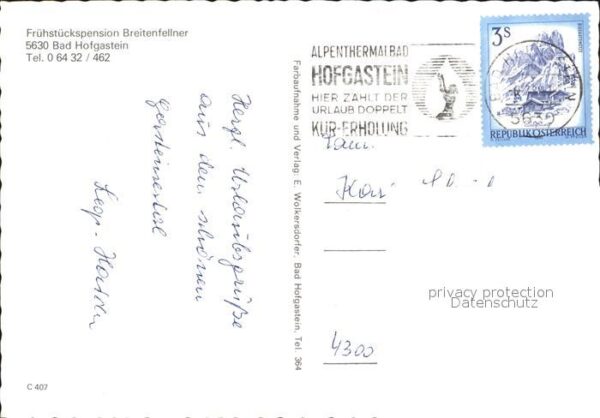 Frühstückspension Breitenfellner
5630 Bad Hofgastein
Tel. 0 64 32 / 462
Herzl. Urlaubsgrüße
aus dem schönen
Gasteinertal
Leop.
Farbaufnahme und Verlag: E. Wolkersdorfer, Bad Hofgastein, Tel. 364
ALPENTHERMALBAD
HOFGASTEIN
HIER ZÄHLT DER
URLAUB DOPPELT
KUR-ERHOLUNG
3S
REPUBLIK ÖSTERREICH
5630
Fam.
4300
privacy protection
Datenschutz
C 407